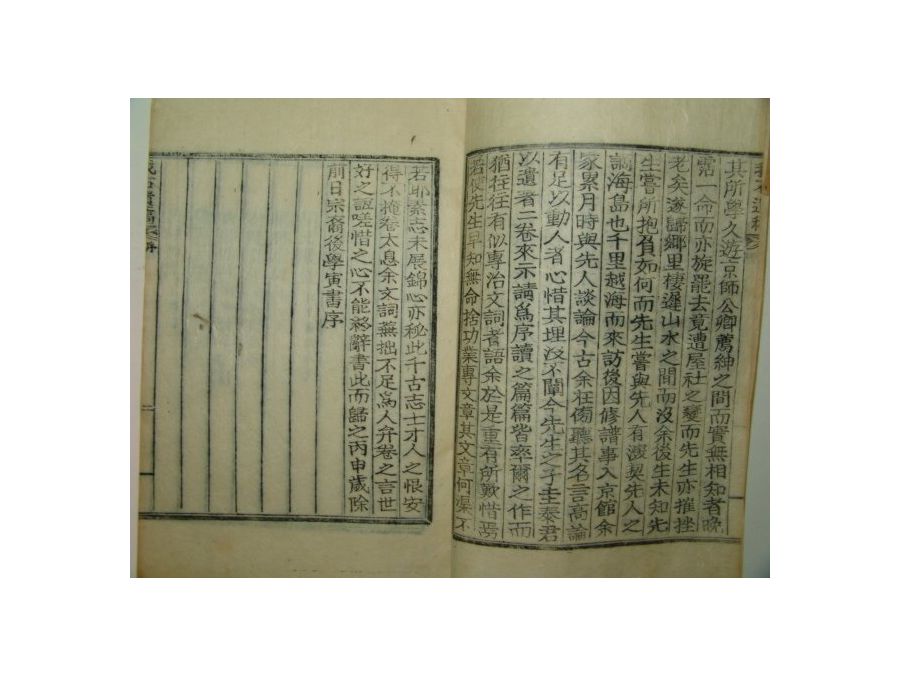 其所學久遊京師公卿薦紳之間而實無相知者晩
霑一命而亦旋罷去竟遭屋社之變而先生亦摧挫
老矣遂歸鄕里棲遲山水之間而沒余後生未知先
生嘗所抱負如何而先生嘗與先人有深契先人之
謫海島也千里越海而來訪後因修譜事入京館余
家累月時與先人談論今古余在傍聽其名言高論
有足以動人者心惜其埋沒不闡今先生之子圭泰君
以遺著二卷來示請爲序讀之篇篇皆率爾之作而
猶往往有似專治文詞者語余於是重有所歎惜焉
若使先生早知無命捨功業專文章其文章何渠不
若耶素志未展錦心亦秘此千古志士才人之恨安
得不掩卷太息余文詞蕪拙不足爲人弁卷之言世
好之誼嗟惜之心不能終辭書此而歸之丙申歲除
前日宗裔後學寅書序